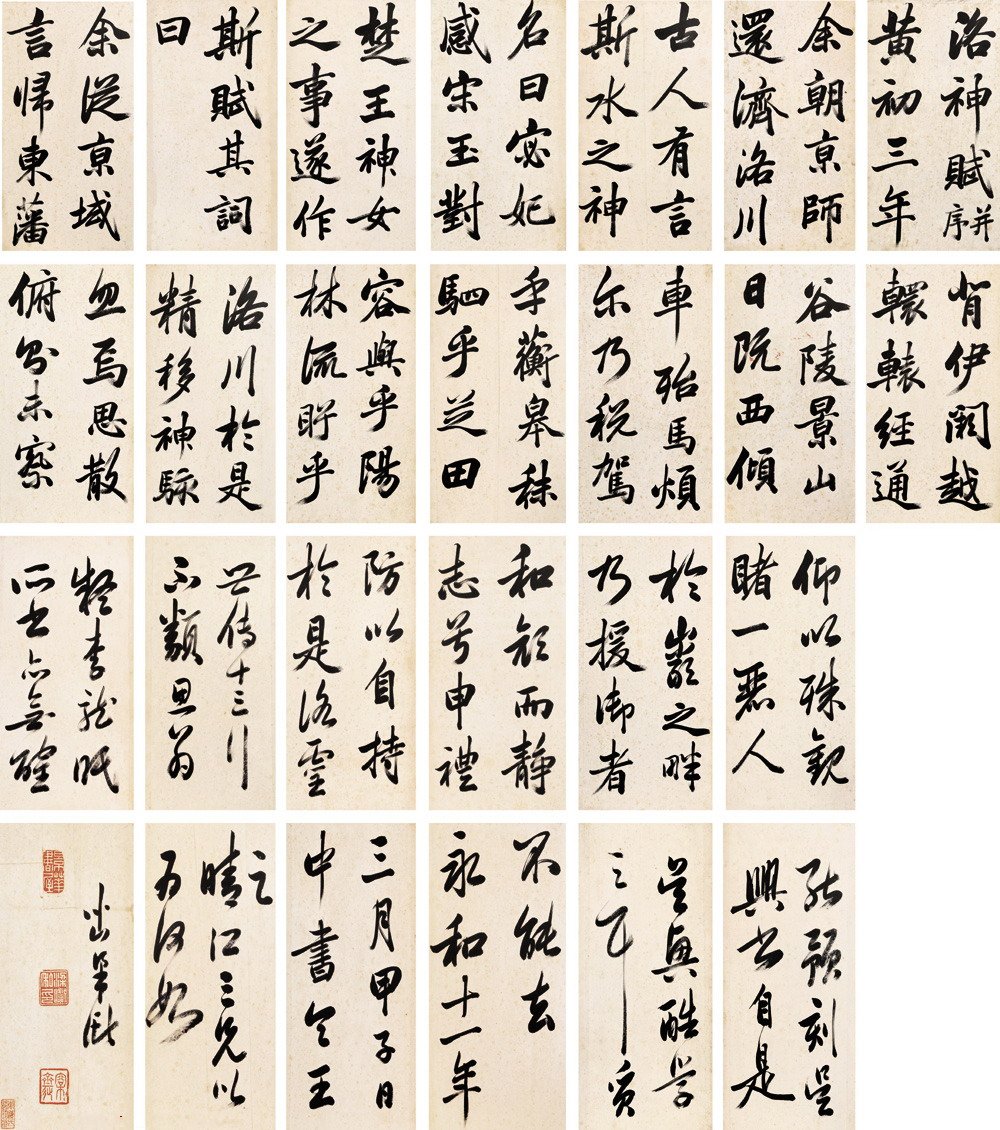 洛神賦并序
黄初三年
余朝京師
還濟洛川
古人有言
斯水之神
名曰宓妃
感宋玉對
楚王神女
之事遂作
斯賦其詞
曰
余從京域
言歸東藩
背伊闕越
轘轅經通
谷陵景山
日既西傾
車殆馬煩
尔乃税駕
乎蘅皋秣
駟乎芝田
容與乎陽
林流眄乎
洛川於是
精移神駭
忽焉思散
俯則未察
仰以殊觀
睹一麗人
於巖之畔
乃援御者
和顔而静
志兮申禮
防以自持
於是洛靈
世傳十三行
不類思翁
李龍眠
所書亦無確
刻
書自是
酷學
不能去
永和十一年
三月甲子日
中書令王
之
晴江三兄以
為何如